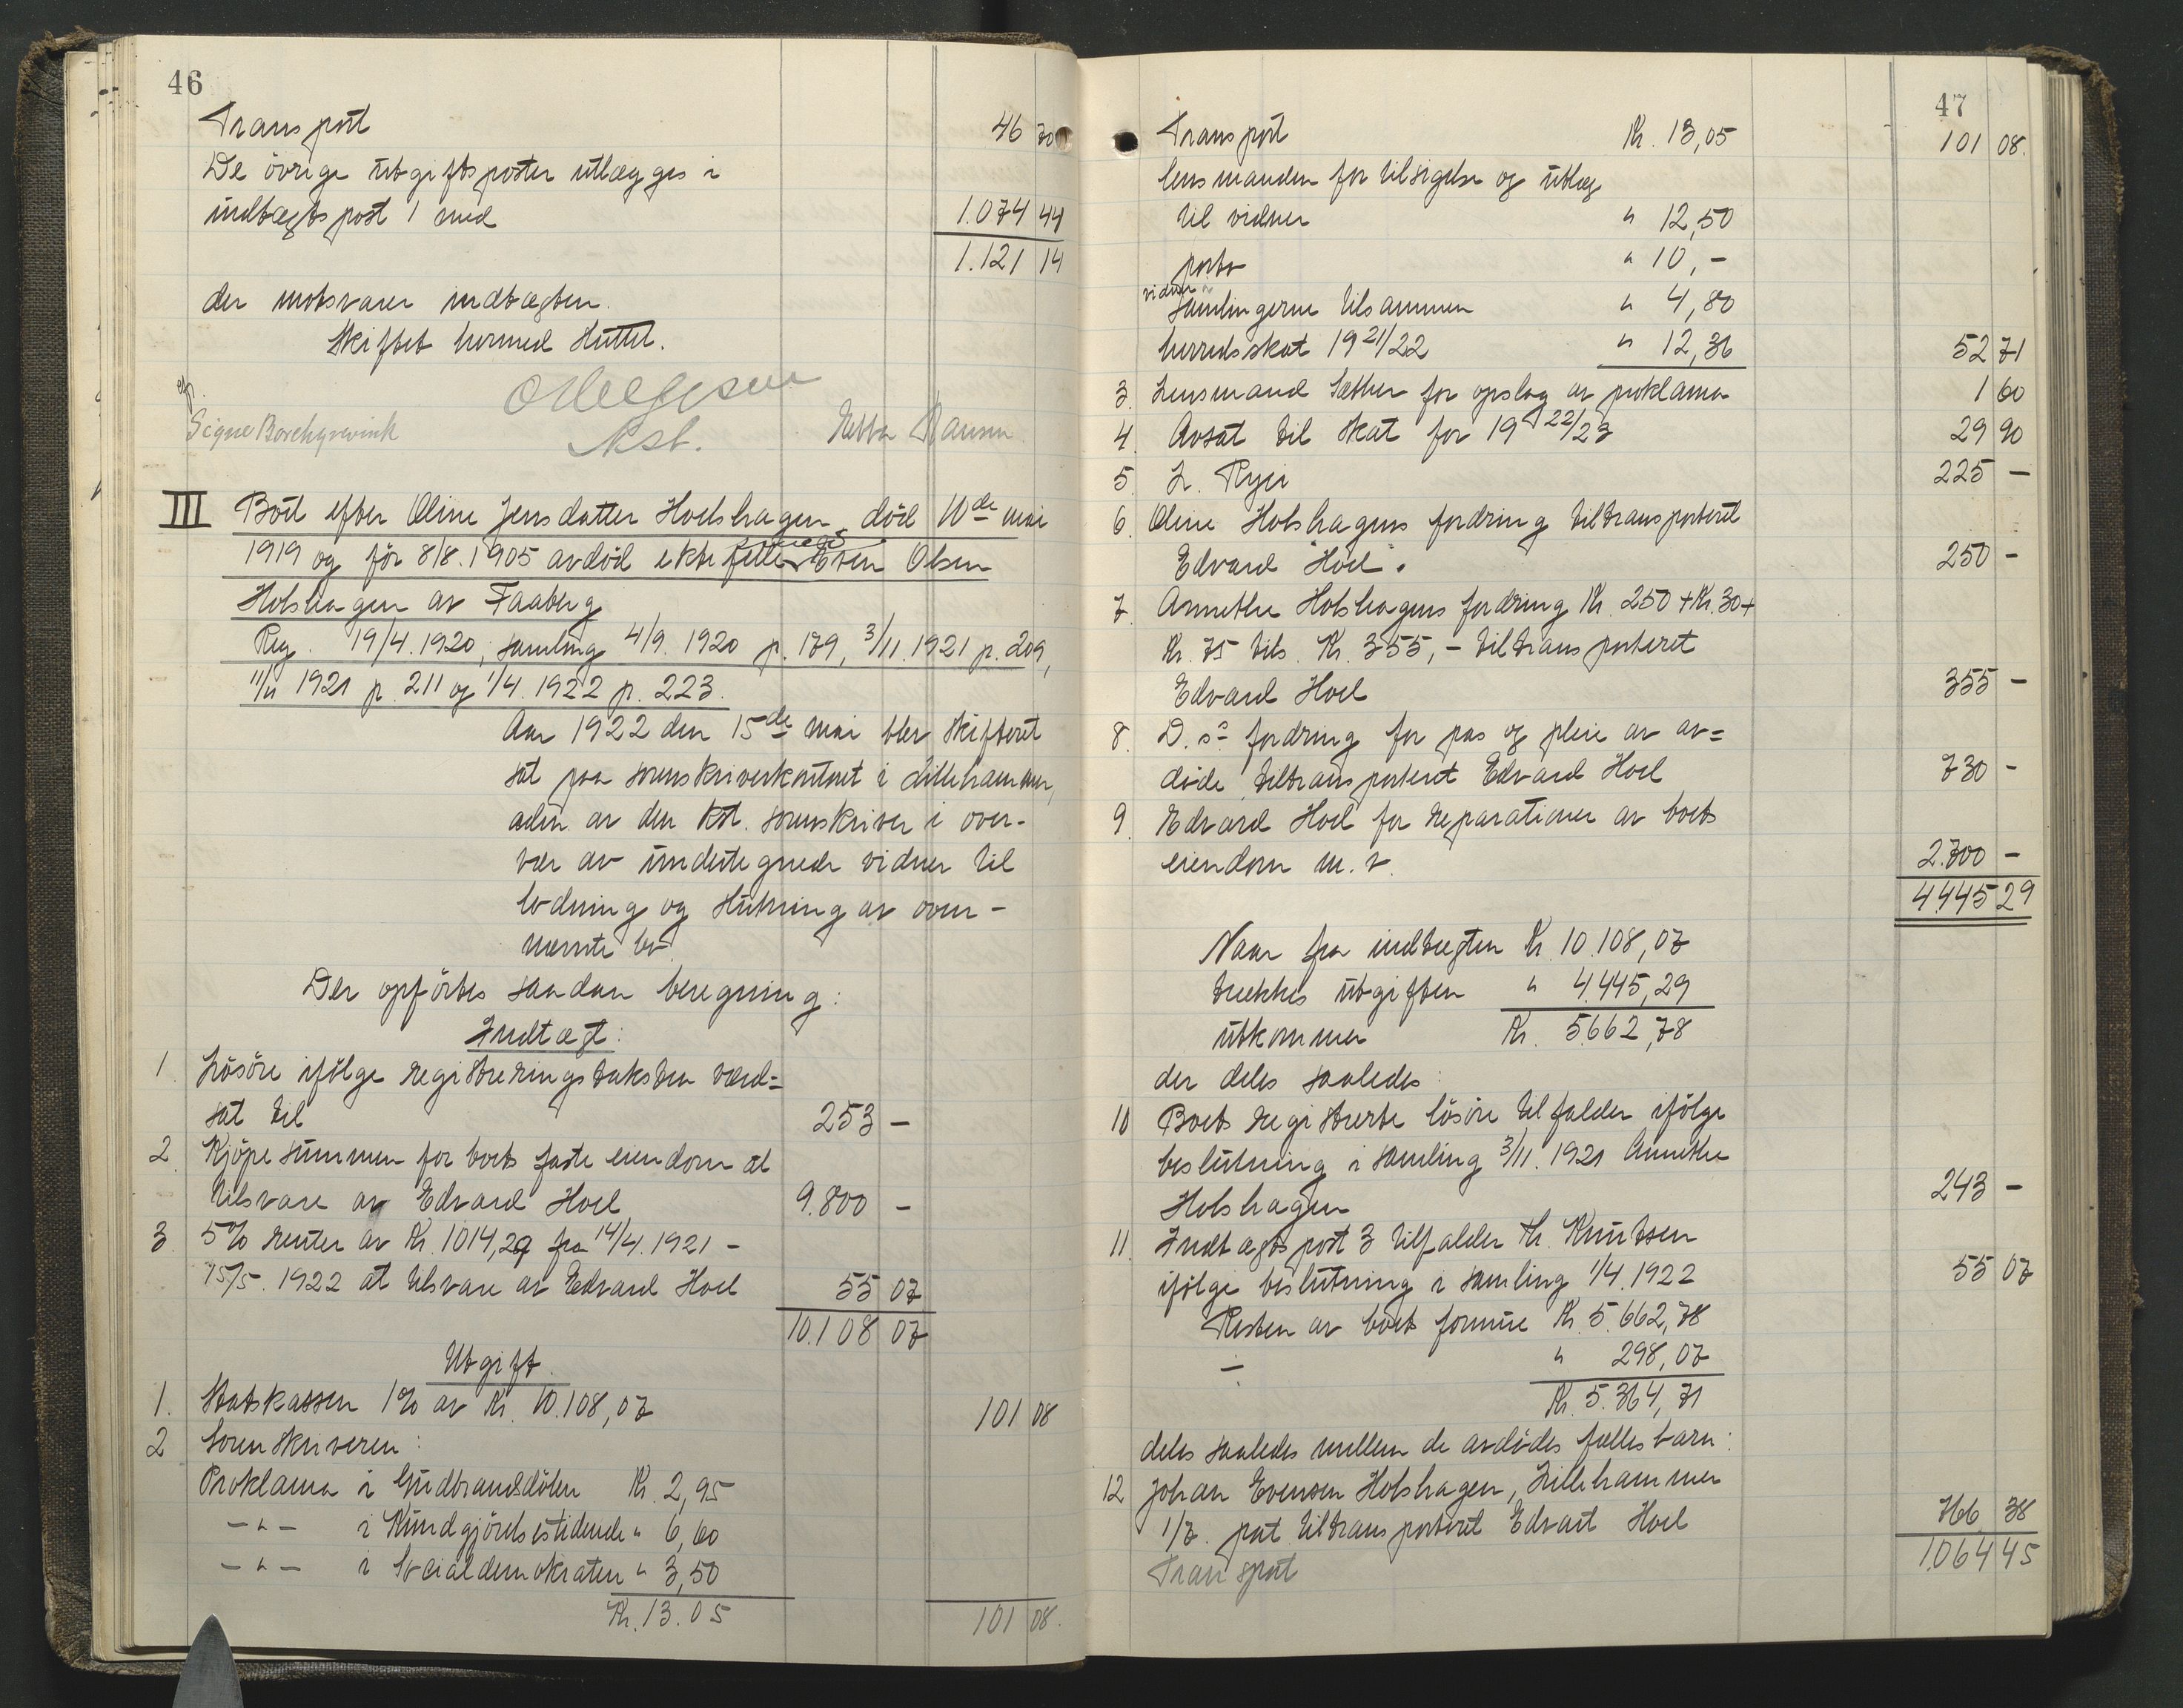 46
Transport 46 70
De övrige utgiftsposter utlægges i
indtægtspost 1 med 1.074 44
1.121 14
der motsvarer indtægten.
Skiftet hermed sluttet.
Signe Borchgrevink
kst.
Ebba Hansen
III Boet efter Oline Jensdatter Holshagen, död 10de mai
1919 og før 8/8. 1905 avdöd ektefelle Even Olsen
Holshagen av Faaberg
Reg. 19/4. 1920, samling 4/9. 1920 p. 179, 3/11. 1921 p. 209,
11/11 1921 p. 211 og 1/4. 1922 p. 223.
Aar 1922 den 15de mai blev skifteret
sat paa sorenskriverkontoret i Lillehammer,
adm. av den kst. sorenskriver i over-
vær av undertegnede vidner til
lodning og slutning av oven-
nævnte bo.
Der opførtes saadan beregning:
Indtægt:
1. Lösöre ifölge registreringstaksten værd=
sat til 253 –
2. Kjöpesummen for boets faste eiendom at
tilsvare av Edvard Hoel 9.800 –
3. 5% renter av Kr. 1014,29 fra 14/4. 1921 –
15/5. 1922 at tilsvare av Edvard Hoel 55 07
10.108 07
Utgift.
1. Statskassen 1% av Kr. 10.108,07 101 08
2 Sorenskriveren:
Proklama i Gudbrandsdölen Kr. 2,95
–"– i Kundgjörelsestidende " 6,60
–"– i Socialdemokraten " 3,50
Kr. 13.05 101 08.
47
Transport Kr. 13,05 101 08.
lensmanden for tilsigelse og utlæg
til vidner " 12,50
porto " 10,–
vidner
samlingerne tilsammen " 4,80
herredsskat 1921/22 " 12,36 52 71
3. Lensmand Sæther for opslag av proklama 1 60
4. Avsat til skat for 1922/23 29 90
5. L. Ryen 225 –
6. Oline Holshagens fordring tiltransporteret
Edvard Hoel. 250 –
7. Annethe Holshagens fordring Kr. 250 + Kr. 30 +
Kr. 75 tils. Kr. 355,– tiltransporteret
Edvard Hoel 355 –
8. D.s? fordring for pas og pleie av av=
døde, tiltransporteret Edvard Hoel 730 –
9. Edvard Hoel for reparationer av boets
eiendom m. v. 2.700 –
4.445 29
Naar fra indtægten Kr. 10.108,07
trækkes utgiften " 4.445,29
utkommer Kr. 5.662,78
der deles saaledes:
10 Boets registrerte lösöre tilfalder ifölge
beslutning i samling 3/11. 1921 Annethe
Holshagen 243 –
11. Indtægtspost 3 tilfalder Th. Knutsen
ifölge beslutning i samling 1/4. 1922 55 07
Resten av boets formue Kr. 5.662,78
– " 298,07
Kr. 5.364,71
deles saaledes mellem de avdödes fælles barn:
12 Johan Evensen Holshagen, Lillehammer
1/7. part tiltransporteret Edvart Hoel 766 38
Transport 1.064 45